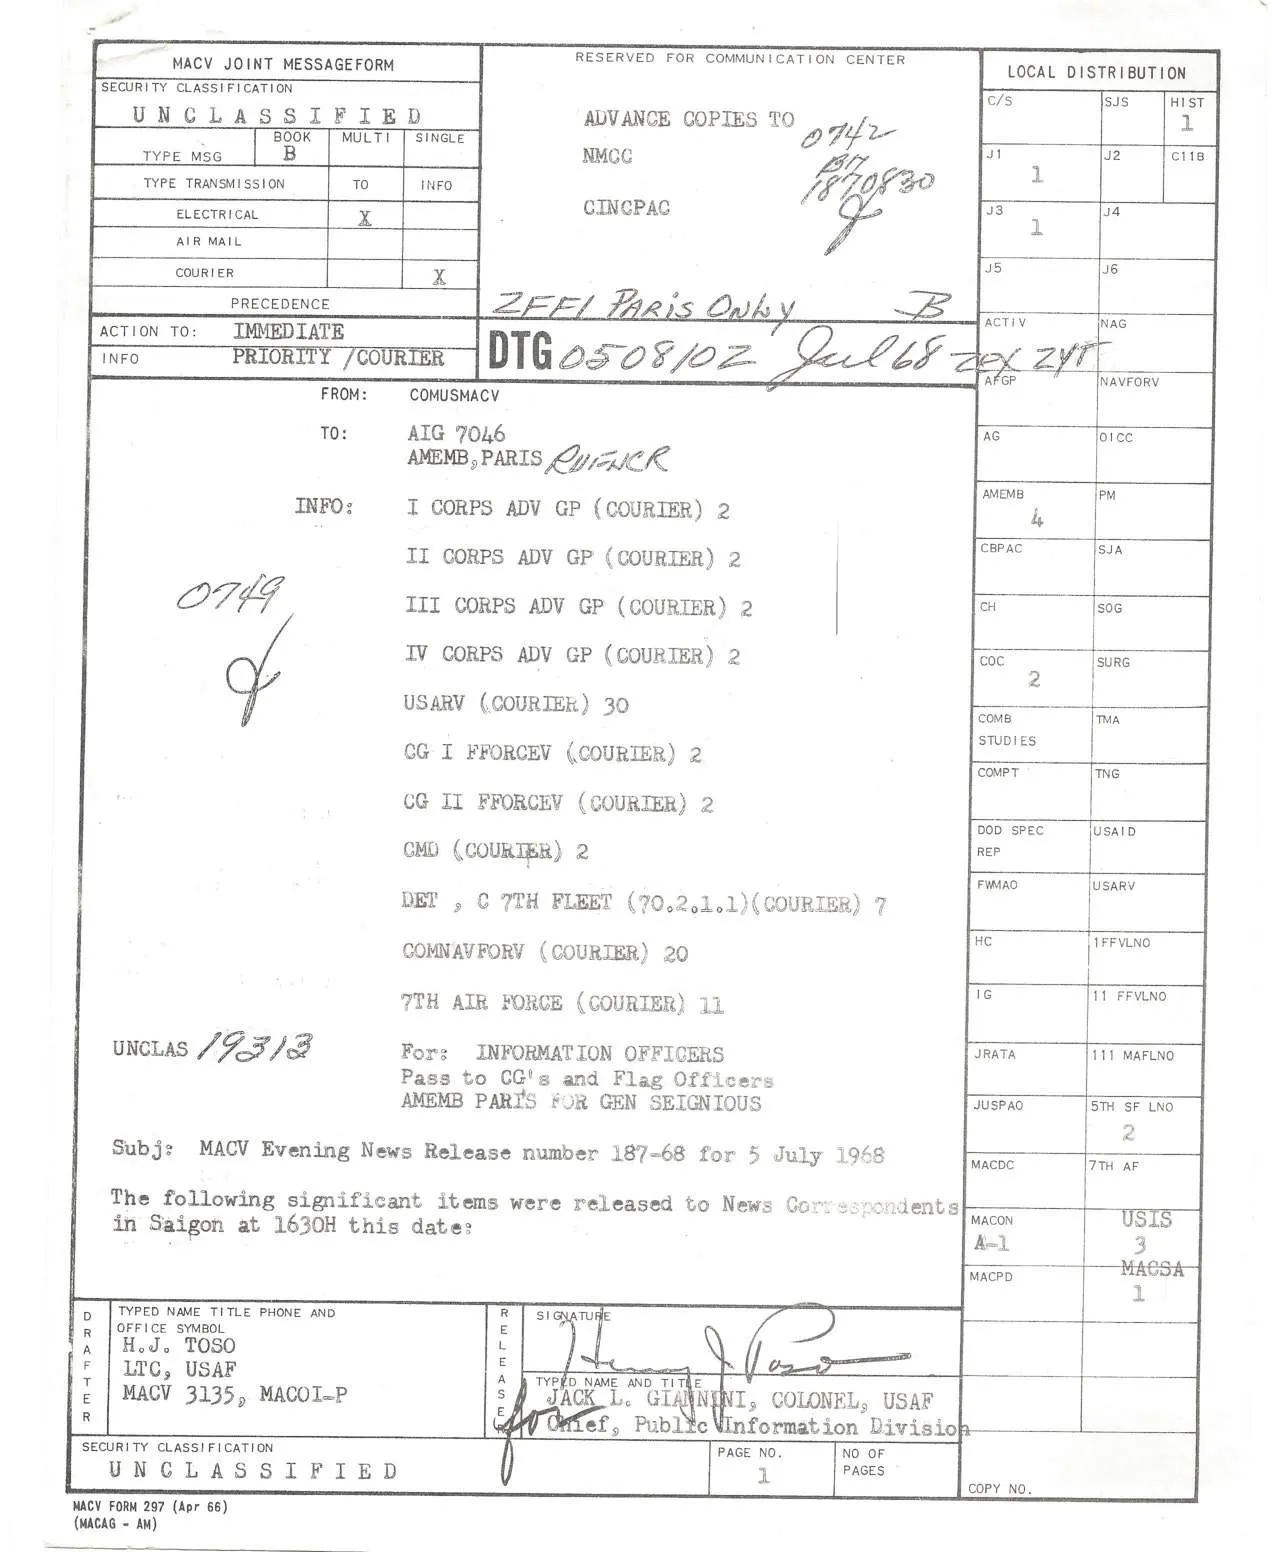 MACV JOINT MESSAGEFORM
SECURITY CLASSIFICATION
UNCLASSIFIED
TYPE MSG
BOOK
B
MULTI
SINGLE
TYPE TRANSMISSION
TO
INFO
ELECTRICAL
X
AIR MAIL
COURIER
X
PRECEDENCE
ACTION TO: IMMEDIATE
INFO PRIORITY /COURIER
RESERVED FOR COMMUNICATION CENTER
ADVANCE COPIES TO
0742
NMCC
1870830
CINCPAC
ZFF1 PARIS ONLY B
DTG 050810Z Jul 68 ZEX ZYT
FROM: COMUSMACV
TO: AIG 7046
AMEMB, PARIS RUFNCR
INFO: I CORPS ADV GP (COURIER) 2
II CORPS ADV GP (COURIER) 2
0749
III CORPS ADV GP (COURIER) 2
IV CORPS ADV GP (COURIER) 2
USARV (COURIER) 30
CG I FFORCEV (COURIER) 2
CG II FFORCEV (COURIER) 2
CMD (COURIER) 2
DET , C 7TH FLEET (70.2.1.1)(COURIER) 7
COMNAVFORV (COURIER) 20
7TH AIR FORCE (COURIER) 11
UNCLAS 19313 For: INFORMATION OFFICERS
Pass to CG's and Flag Officers
AMEMB PARIS FOR GEN SEIGNIOUS
Subj: MACV Evening News Release number 187-68 for 5 July 1968
The following significant items were released to News Correspondents
in Saigon at 1630H this date:
LOCAL DISTRIBUTION
C/S
SJS
HIST
1
J1
1
J2
C11B
J3
1
J4
J5
J6
ACTIV
NAG
AFGP
NAVFORV
AG
OICC
AMEMB
4
PM
CBPAC
SJA
CH
SOG
COC
2
SURG
COMB
STUDIES
TMA
COMPT
TNG
DOD SPEC
REP
USAID
FWMAO
USARV
HC
1FFVLNO
IG
11 FFVLNO
JRATA
111 MAFLNO
JUSPAO
5TH SF LNO
2
MACDC
7TH AF
MACON
A-1
USIS
3
MACPD
MACSA
1
DRAFTER
TYPED NAME TITLE PHONE AND
OFFICE SYMBOL
H.J. TOSO
LTC, USAF
MACV 3135, MACOI-P
RELEASER
SIGNATURE
Henry J Toso
TYPED NAME AND TITLE
JACK L. GIANNINI, COLONEL, USAF
for Chief, Public Information Division
SECURITY CLASSIFICATION
UNCLASSIFIED
PAGE NO.
1
NO OF
PAGES
COPY NO.
MACV FORM 297 (Apr 66)
(MACAG - AM)